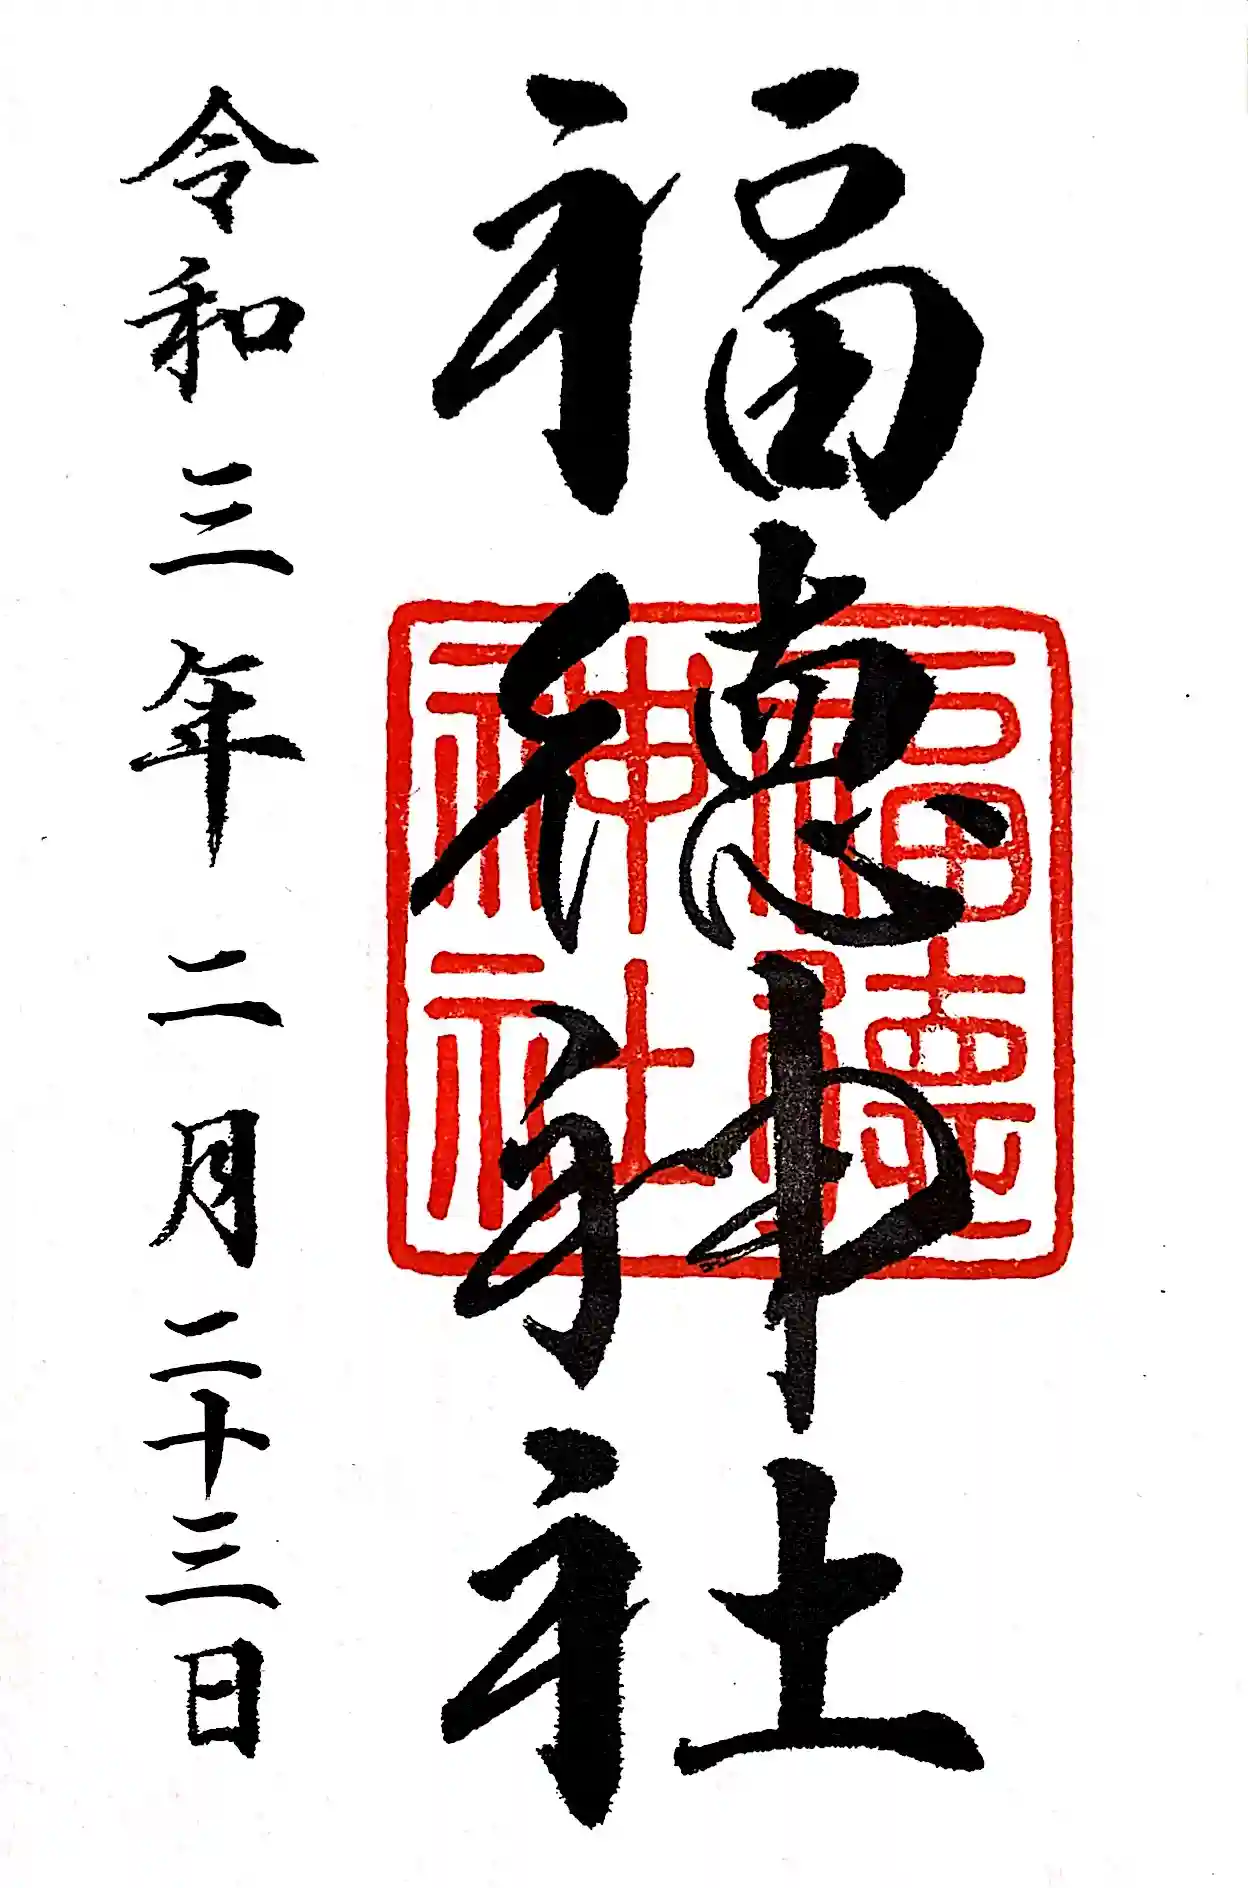 福徳神社
福徳
神社
令和三年二月二十三日